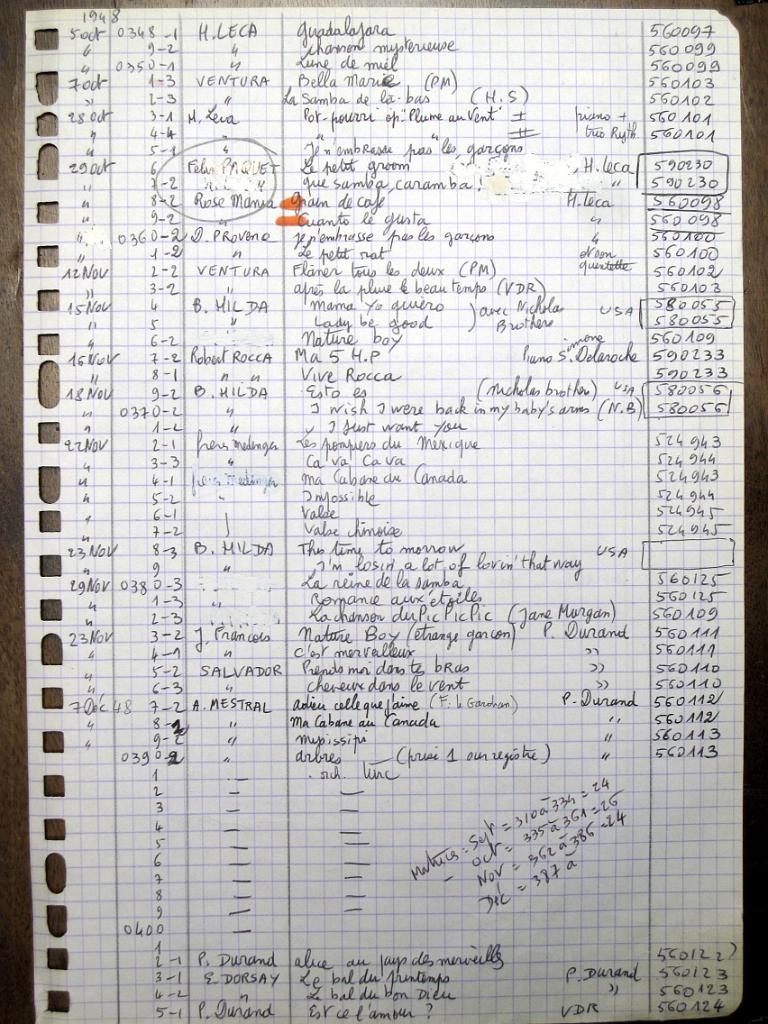 1948
5 oct 0348-1 H. LECA Guadalajara 560097
6 9-2 " chanson mysterieuse 560099
" 0350-1 " Lune de miel 560099
7 oct 1-3 VENTURA Bella Maria (PM) 560103
" 2-3 " La Samba de la-bas (H.S) 560102
28 oct 3-1 H. Leca Pot-pourri op. "Plume au Vent" I piano + 560101
" 4-4 " " " II trio Ryth. 560101
" 5-1 " Je n'embrasse pas les garçons
29 oct 6 Felix PAQUET Le petit groom H. Leca 590230
7-2 " que samba, caramba! " 590230
8-2 Rose Mania Grain de café H. Leca 560098
" 9-2 " Cuanto le gusta " 560098
" 0360-2 D. PROVENC Je n'embrasse pas les garçons " 560100
1-2 " Le petit rat quintette 560100
12 Nov 2-2 VENTURA Flâner tous les deux (PM) 560102
" 3-2 " après la pluie le beau temps (VDR) 560103
15 Nov 4 B. HILDA Mama yo quiero ) avec Nicholas USA 580055
5 " Lady be good ) Brothers 580055
6-2 Nature boy 560109
16 Nov 7-2 Robert ROCCA Ma 5 H.P Piano Simone Delaroche 590233
" 8-1 " " Vive Rocca 590233
18 Nov 9-2 B. HILDA Esto es (Nicholas brothers) USA 580056
" 0370-2 " I wish I were back in my baby's arms (N.B) 580056
" 1-2 " I Just want You
22 Nov 2-1 freres medinger Les pompiers du Mexique 524943
" 3-3 " Ca Va Ca va 524944
" 4-1 freres medinger ma Cabane du Canada 524943
" 5-2 " Impossible 524944
" 6-1 Valse 524945
" 7-2 Valse chinoise 524945
23 Nov 8-3 B. HILDA This time to morrow USA
" 9 " I'm losin a lot of lovin' that way
29 Nov 0380-3 La reine de la samba 560125
" 1-3 Romance aux étoiles 560125
" 2-3 La chanson du Pic Pic Pic (Jane Morgan) 560109
23 Nov 3-2 J. Francois Nature Boy (étrange garçon) P. Durand 560111
" 4-1 " c'est merveilleux " 560111
" 5-2 SALVADOR Prends moi dans tes bras " 560110
" 6-3 " cheveux dans le vent " 560110
7 Déc 48 7-2 A. MESTRAL adieu celle que j'aime P. Durand 560112
" 8-2 " Ma Cabane au Canada " 560112
" 9-2 " Mississipi " 560113
0390-2 " arbres (prise 1 sur registre) " 560113
1 —
2 — —
3 — —
4 — —
5 — —
6 — —
7 — —
8 — —
9 — —
0400
Matrices = Sept = 310 à 334 = 24
- Oct = 335 à 361 = 26
Nov = 362 à 386 = 24
Déc = 387 à
1
2-1 P. Durand alice au pays des merveilles 560122
3-1 E. DORSAY Le bal du printemps P. Durand 560123
4-2 " Le bal du bon Dieu " 560123
5-1 P. Durand Est ce l'amour? VDR 560124